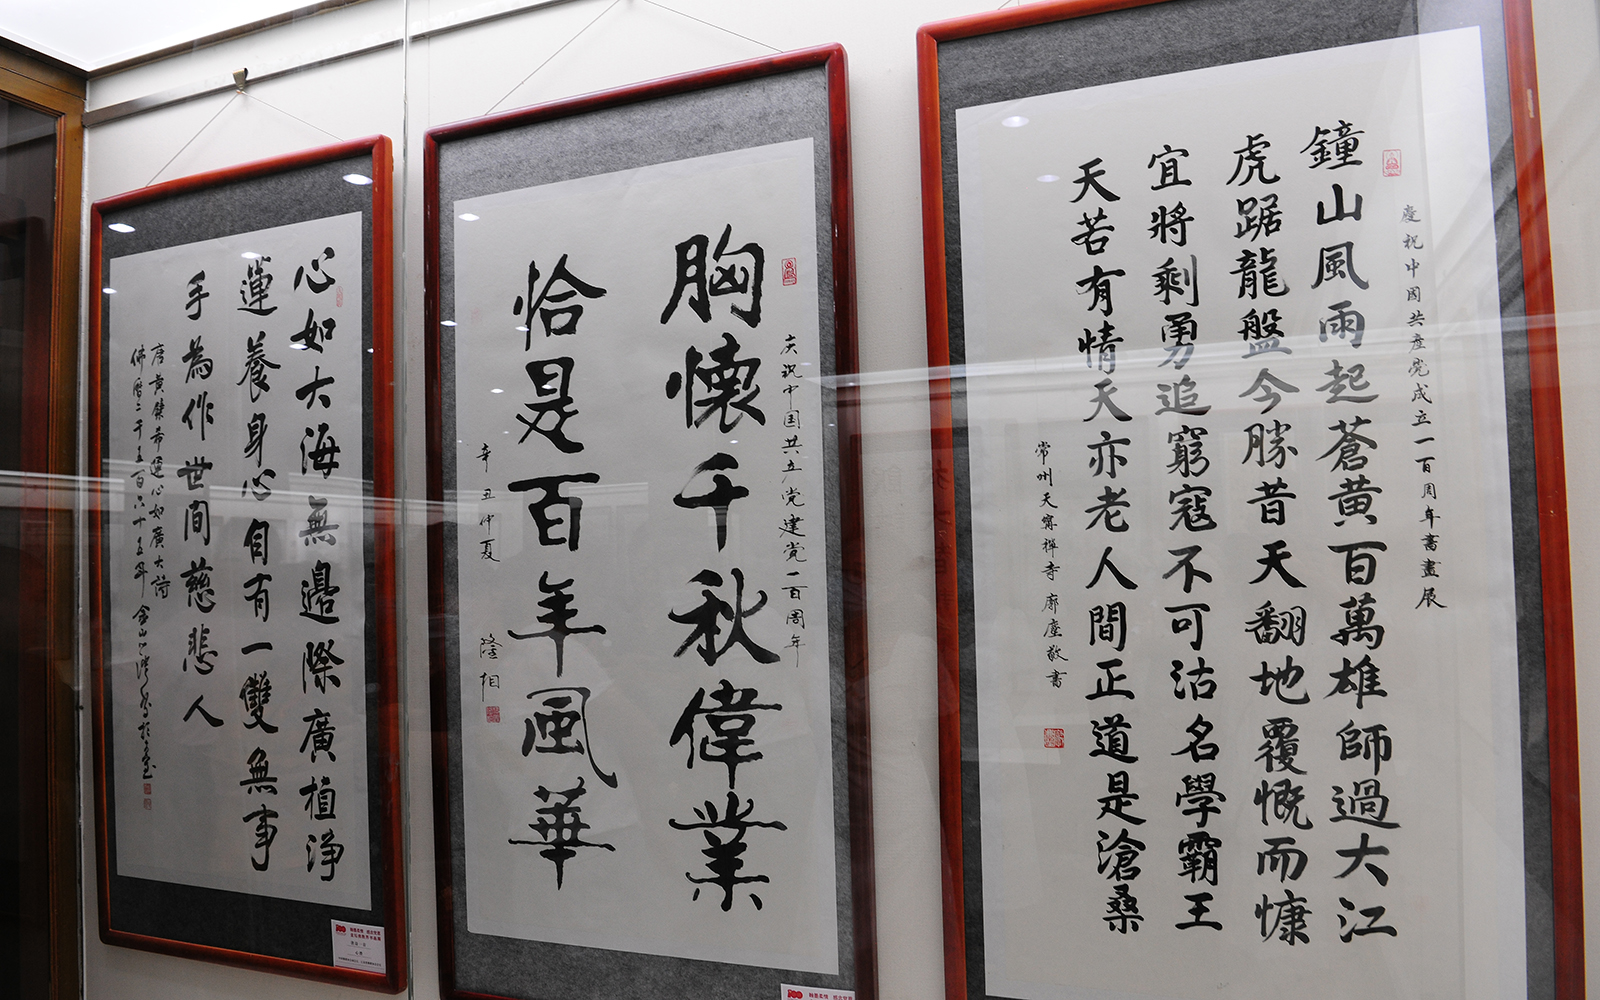 慶祝中国共產党成立一百周年書畫展
鐘山風雨起蒼黄百萬雄師過大江
虎踞龍盤今勝昔天翻地覆慨而慷
宜將剩勇追窮寇不可沽名學霸王
天若有情天亦老人間正道是滄桑
常州天寧禅寺廓塵敬書
庆祝中国共产党建党一百周年
胸懷千秋偉業
恰是百年風華
辛丑仲夏
隆相
心如大海無邊際廣植淨
蓮養身心自有一雙無事
手為作世间慈悲人
唐黄檗希運心如廣大詩
佛曆二千五百六十五年金山